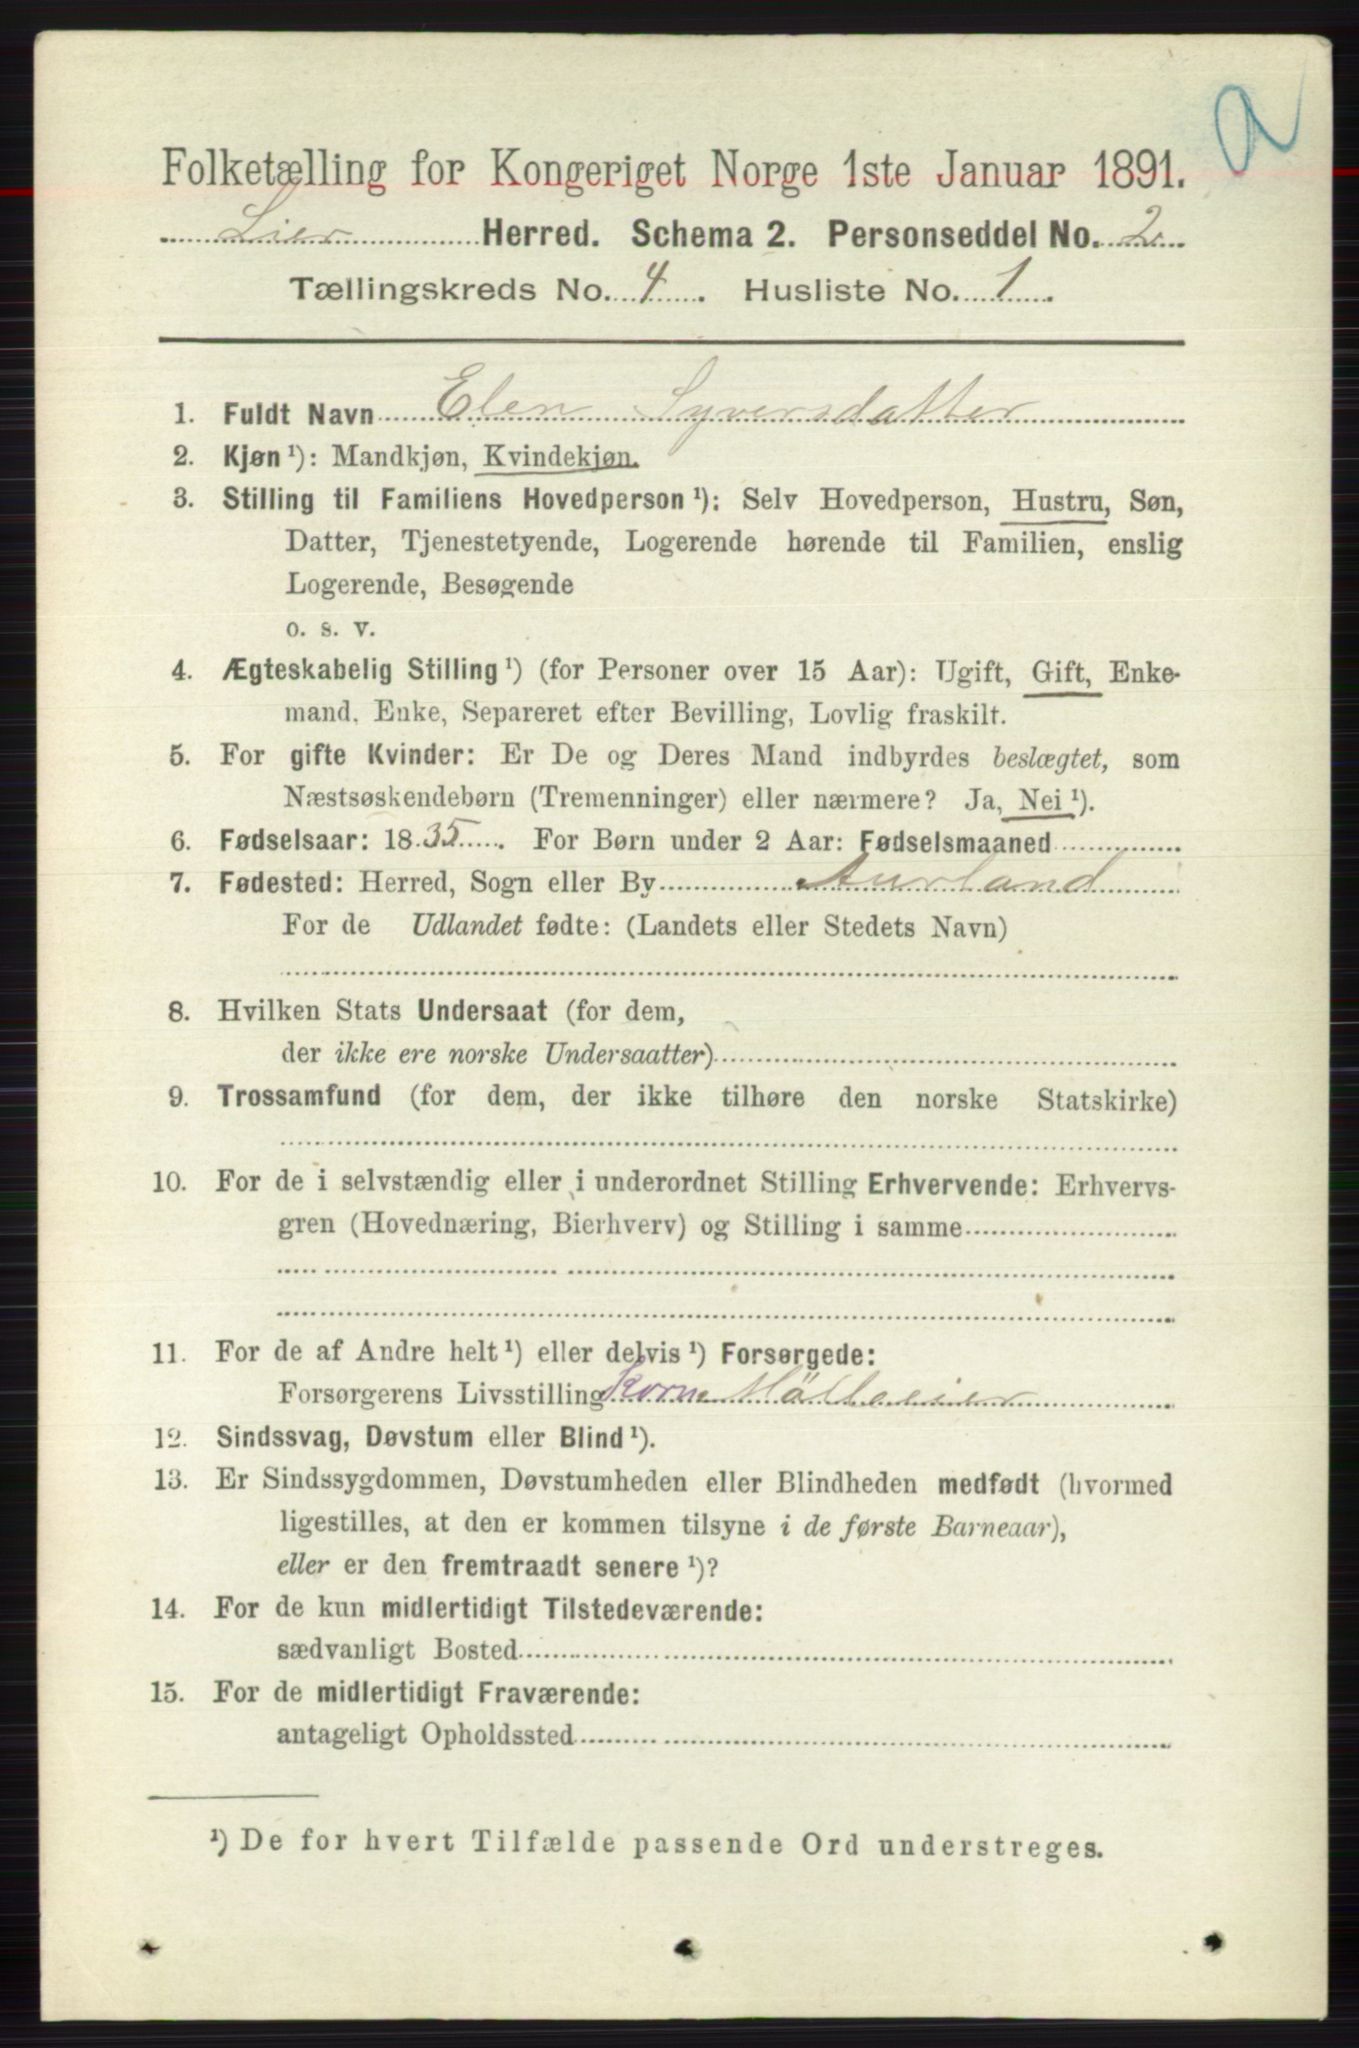 a
Folketælling for Kongeriget Norge 1ste Januar 1891.
Lier Herred. Schema 2. Personseddel No. 2
Tællingskreds No. 4. Husliste No. 1.
1. Fuldt Navn Elen Syversdatter
2. Kjøn ¹): Mandkjøn, Kvindekjøn.
3. Stilling til Familiens Hovedperson ¹): Selv Hovedperson, Hustru, Søn,
Datter, Tjenestetyende, Logerende hørende til Familien, enslig
Logerende, Besøgende
o. s. v.
4. Ægteskabelig Stilling ¹) (for Personer over 15 Aar): Ugift, Gift, Enke-
mand, Enke, Separeret efter Bevilling, Lovlig fraskilt.
5. For gifte Kvinder: Er De og Deres Mand indbyrdes beslægtet, som
Næstsøskendebørn (Tremenninger) eller nærmere? Ja, Nei ¹).
6. Fødselsaar: 1835. For Børn under 2 Aar: Fødselsmaaned
7. Fødested: Herred, Sogn eller By Aurland
For de Udlandet fødte: (Landets eller Stedets Navn)
8. Hvilken Stats Undersaat (for dem,
der ikke ere norske Undersaatter)
9. Trossamfund (for dem, der ikke tilhøre den norske Statskirke)
10. For de i selvstændig eller i underordnet Stilling Erhvervende: Erhvervs-
gren (Hovednæring, Bierhverv) og Stilling i samme
11. For de af Andre helt ¹) eller delvis ¹) Forsørgede:
Forsørgerens Livsstilling Korn Mölleeier
12. Sindssvag, Døvstum eller Blind ¹).
13. Er Sindssygdommen, Døvstumheden eller Blindheden medfødt (hvormed
ligestilles, at den er kommen tilsyne i de første Barneaar),
eller er den fremtraadt senere ¹)?
14. For de kun midlertidigt Tilstedeværende:
sædvanligt Bosted
15. For de midlertidigt Fraværende:
antageligt Opholdssted
¹) De for hvert Tilfælde passende Ord understreges.